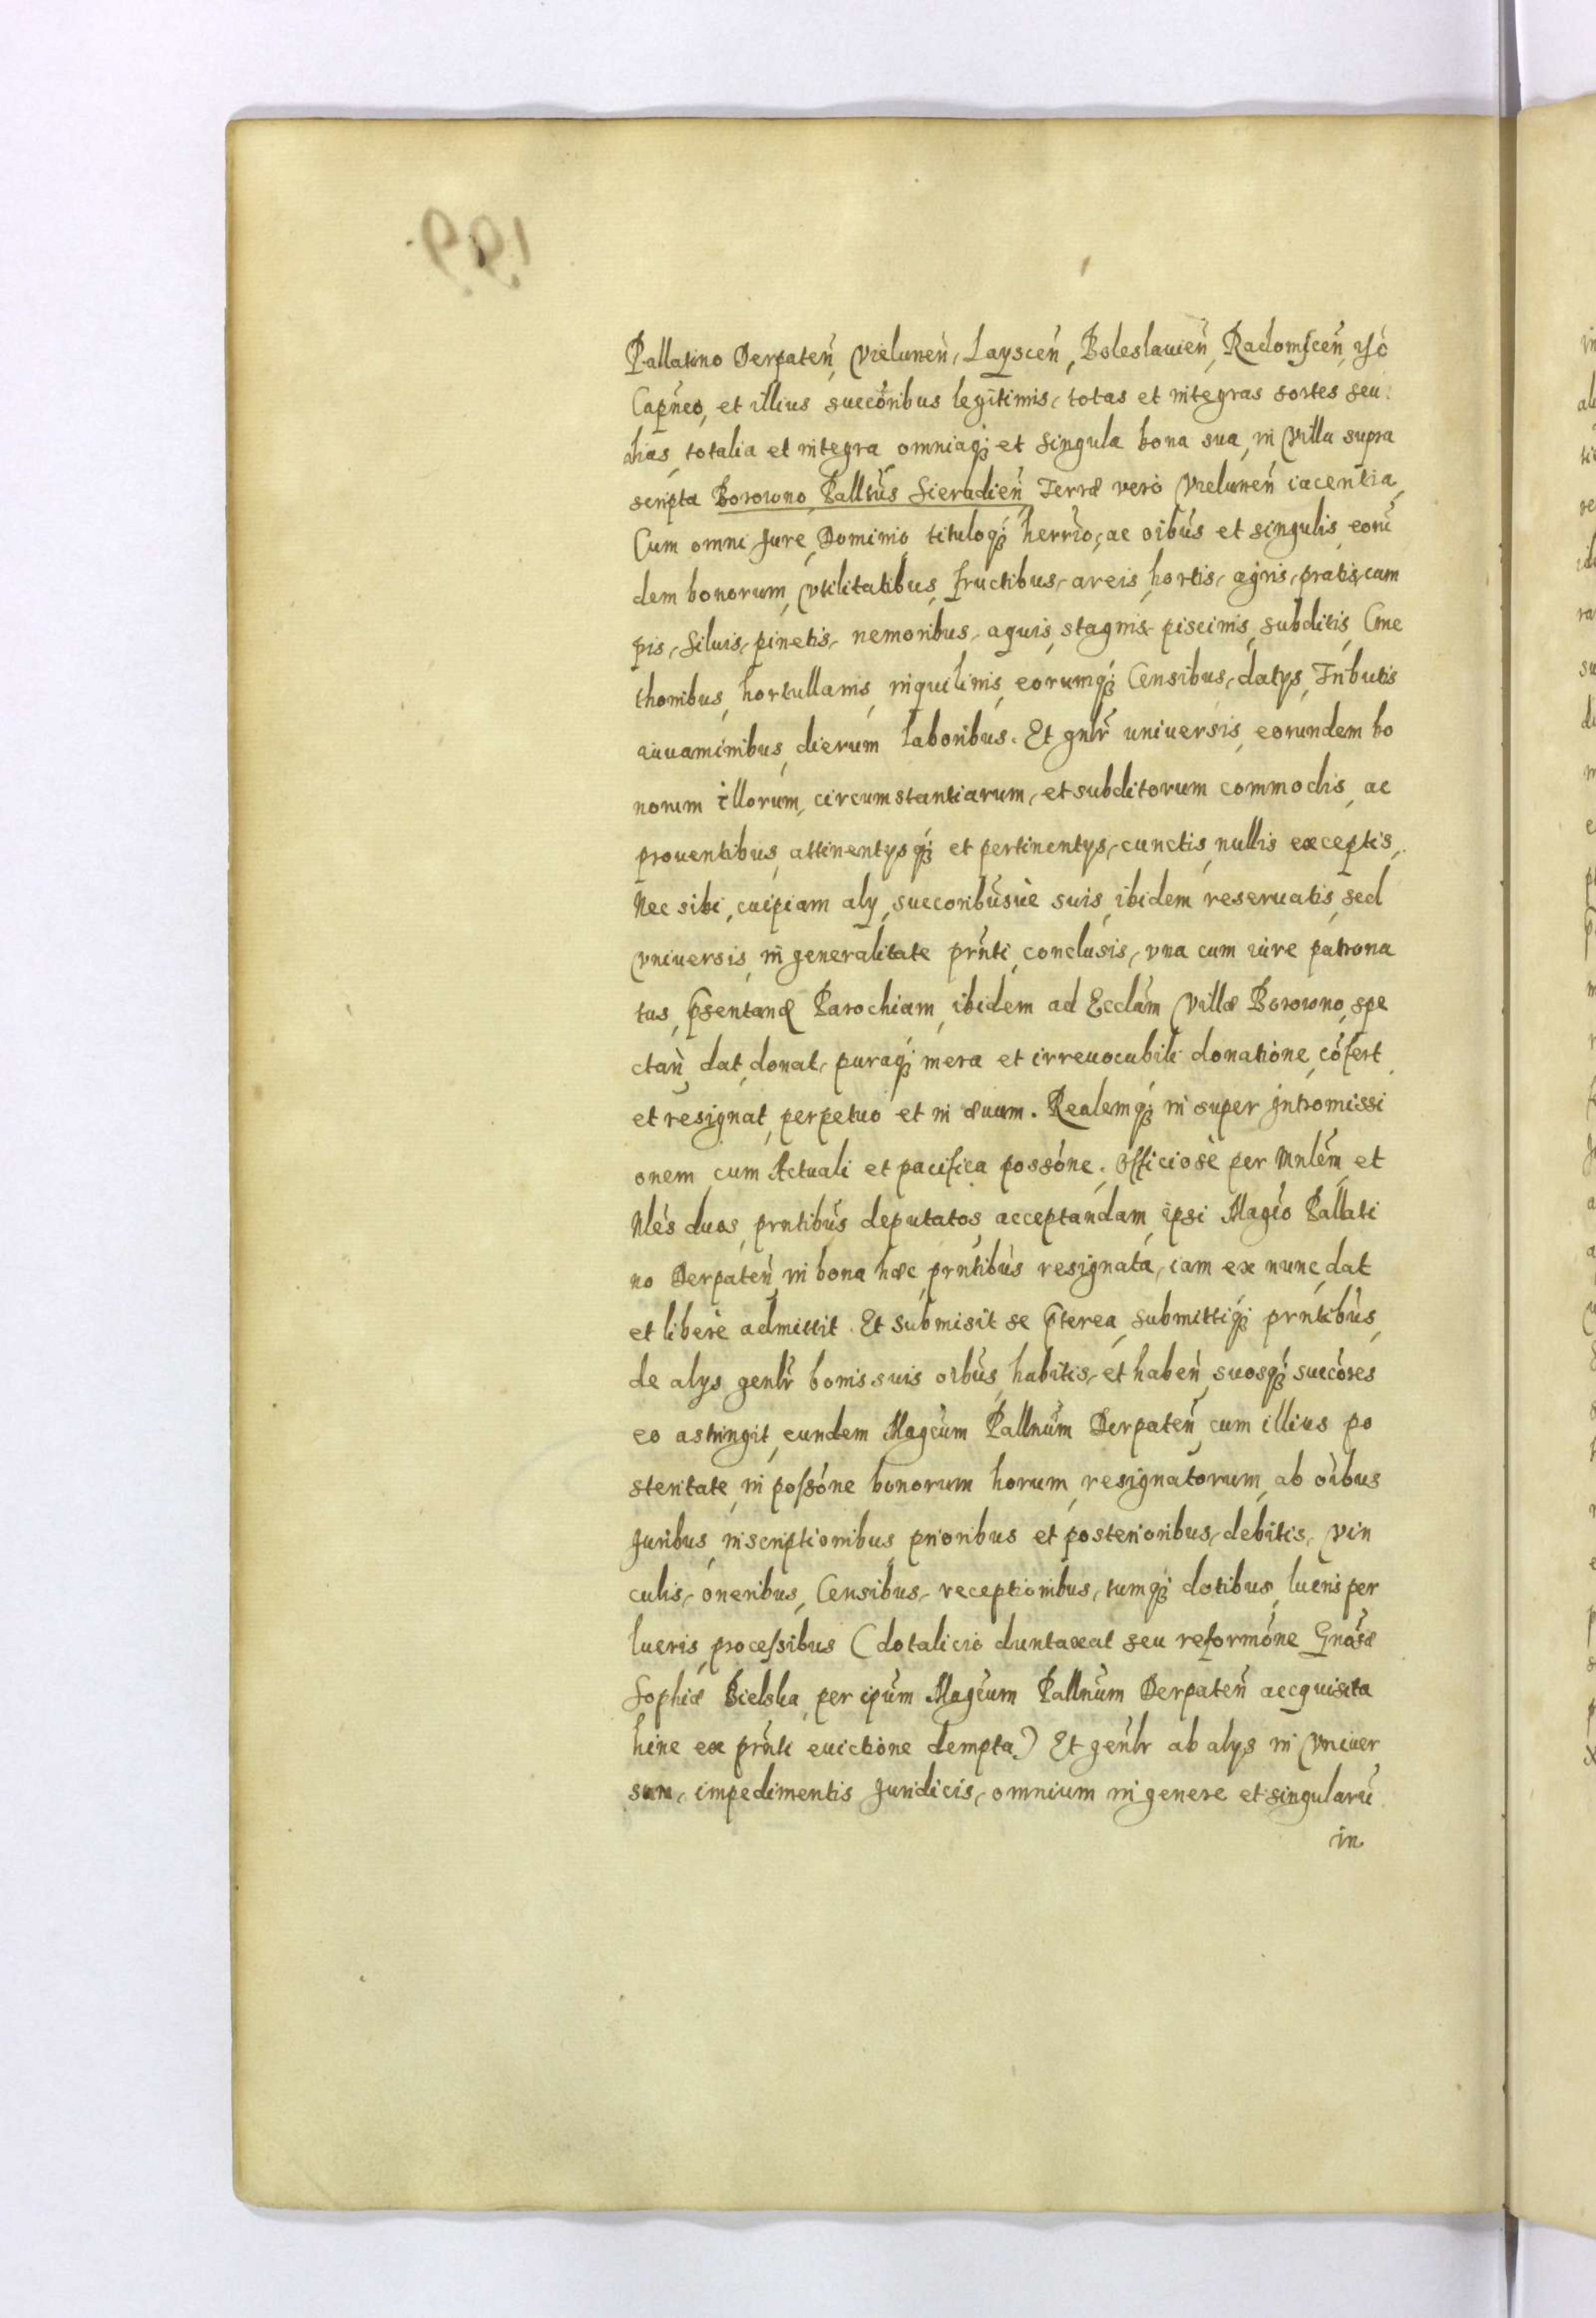 199.
Pallatino Derpateń, Vieluneń, Laysceń, Boleslauień, Radomsceń,
Capńeo, et illius succoribus legitimis, totas et integras sortes seu
alias, totalia et integra, omniaq; et singula bona sua, in Villa supra
scripta Borowno, Palltus Sieradień, Terræ vero Vieluneń iacentia,
Cum omni Jure, Dominio tituloq; herrio, ac oibus et singulis, eorū
dem bonorum, vtilitatibus, fructibus, areis, hortis, agris, pratis, cam
pis, siluis, pinetis, nemoribus, aquis, stagnis, piscinis, subditis, Cme
thonibus, hortullanis, inquilinis, eorumq; Censibus, datys, Tributis
aiuuaminibus, dierum laboribus. Et gnlr universis, eorundem bo
norum illorum, circumstantiarum, et subditorum commodis, ac
prouentibus, attinentysq; et pertinentys, cunctis, nullis exceptis,
Nec sibi, cuipiam aly, succoribusue suis, ibidem reseruatis, sed
vniuersis, in generalitate prnti, conclusis, vna cum iure patrona
tus, p̄sentand Parochiam, ibidem ad Ecclam Villæ Borowno, spe
ctań, dat, donat, puraq; mera et irreuocabili donatione, cōfert
et resignat, perpetuo et in æuum. Realemq; in super Intromissi
onem, cum Actuali et pacifica possone, Officiose per Mnlem, et
Nles duos, prntibus deputatos, acceptandam, ipsi Magco Pallati
no Derpateń, in bona hæc, prntibus resignata, iam ex nunc, dat
et libere admittit. Et submisit se p̄terea, submittiq; prntibus,
de alys genlr bonis suis oibus, habitis, et habeń, suosq; succores
eo astringit, eundem Magcum Pallnum Derpateń, cum illius po
steritate, in possone bonorum horum, resignatorum, ab oibus
Juribus, inscriptionibus prioribus et posterioribus, debitis, vin
culis, oneribus, Censibus, receptionibus, tumq; dotibus, lucris per
lucris, processibus (dotalicio duntaxat seu reformone Gnosæ
Sophiæ Bielska, per ipum Magcum Pallnum Derpateń accquisita
hinc ex prnti euictione dempta) Et genlr ab alys in Vniuer
sum, impedimentis Juridicis, omnium in genere et singularū
in